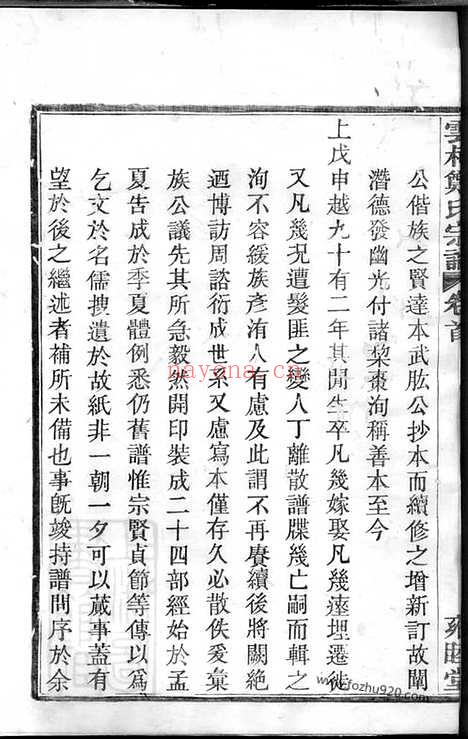 雲村鄭氏宗譜
卷首
雍睦堂
公偕族之賢達本武肱公抄本而續修之增新訂故闡
潛德發幽光付諸梨棗洵稱善本至今
上戊申越九十有二年其間生卒凡幾嫁娶凡幾葬埋遷徙
又凡幾況遭髮匪之變人丁離散譜牒幾亡嗣而輯之
洵不容緩族彥洧人有慮及此謂不再賡續後將闕絕
迺博訪周諮衍成世系又慮寫本僅存久必散佚爰彙
族公議先其所急毅然開印裝成二十四部經始於孟
夏告成於季夏體例悉仍舊譜惟宗賢貞節等傳以為
乞文於名儒搜遺於故紙非一朝一夕可以蕆事蓋有
望於後之繼述者補所未備也事旣竣持譜問序於余
nayona.cn
www.fozhu920.com